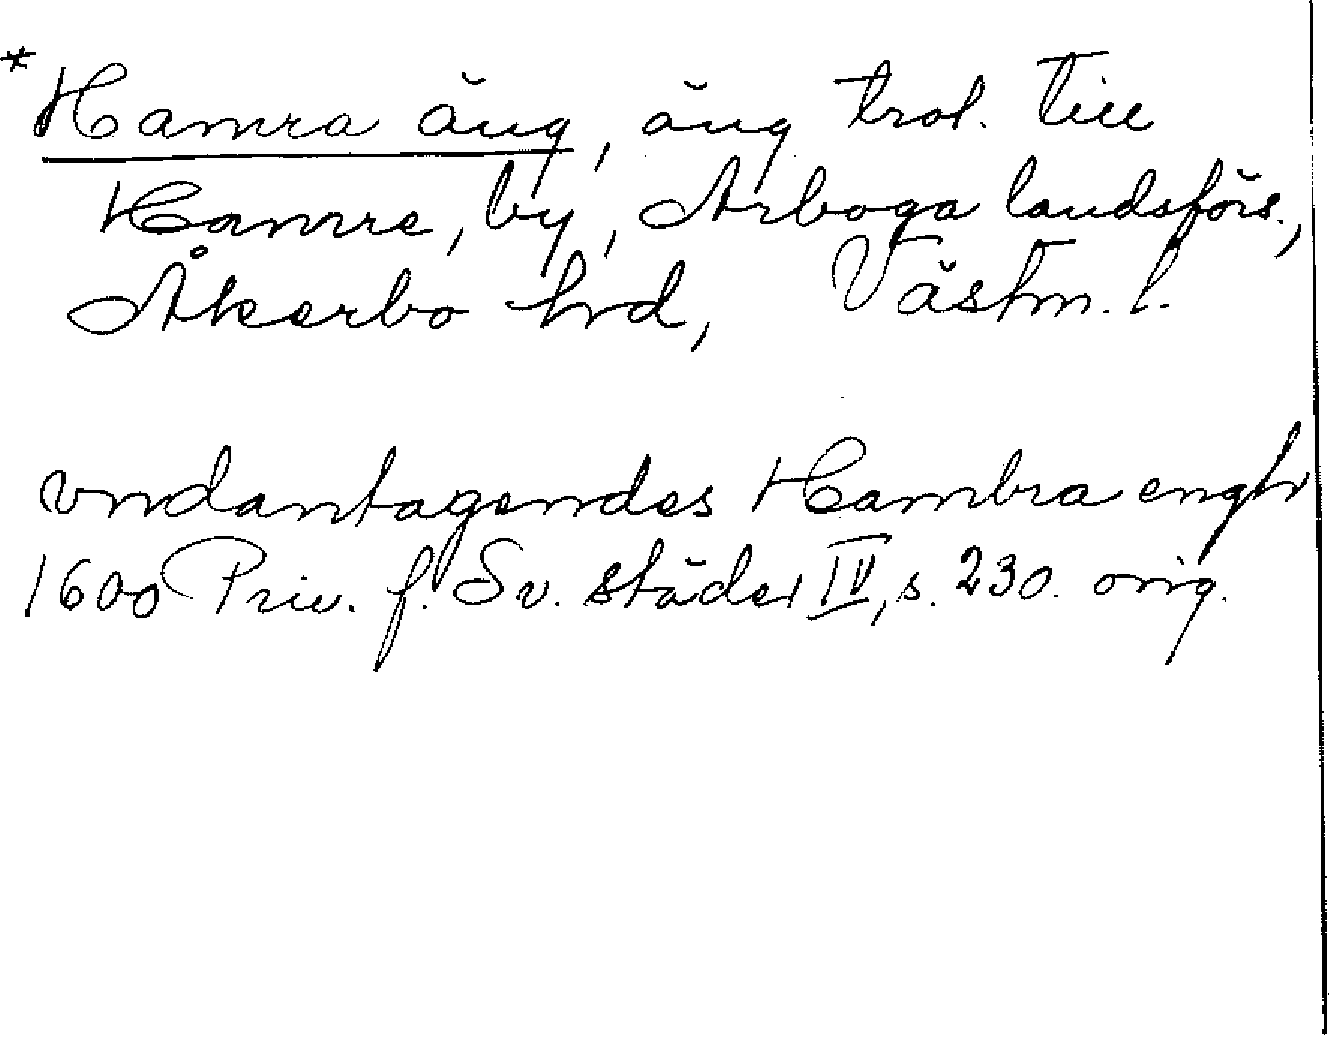 * Hamra äng, äng trol. till
Hamre, by, Arboga landsförs.,
Åkerbo hd, Västm. l.
vndantagendes Hambra engh
1600 Priv. f. Sv. städer IV, s. 230. orig.